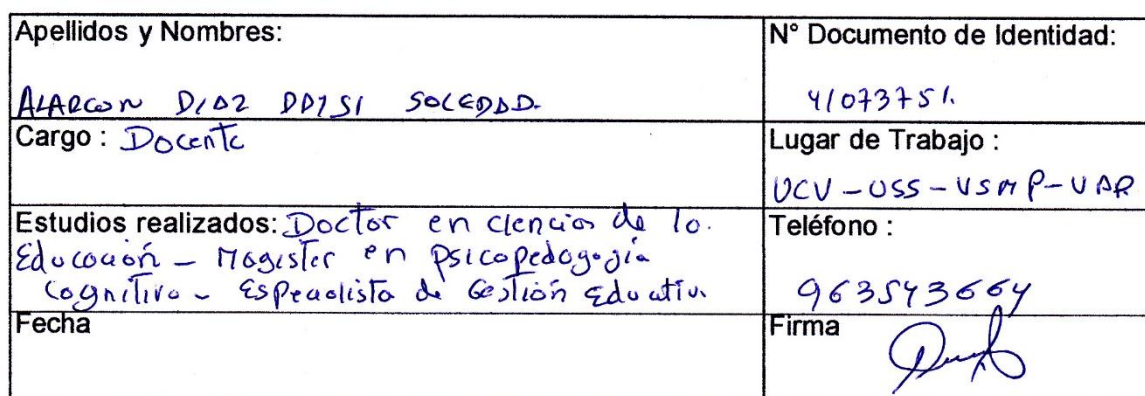 Apellidos y Nombres:
N° Documento de Identidad:
ALARCON DIAZ DAYSI SOLEDAD.
41073751.
Cargo : Docente
Lugar de Trabajo :
UCV - USS - USMP - UAP
Estudios realizados: Doctor en Ciencias de la
Educación - Magister en Psicopedagogía
Cognitiva - Especialista de Gestión Educativa
Teléfono :
963543664
Fecha
Firma